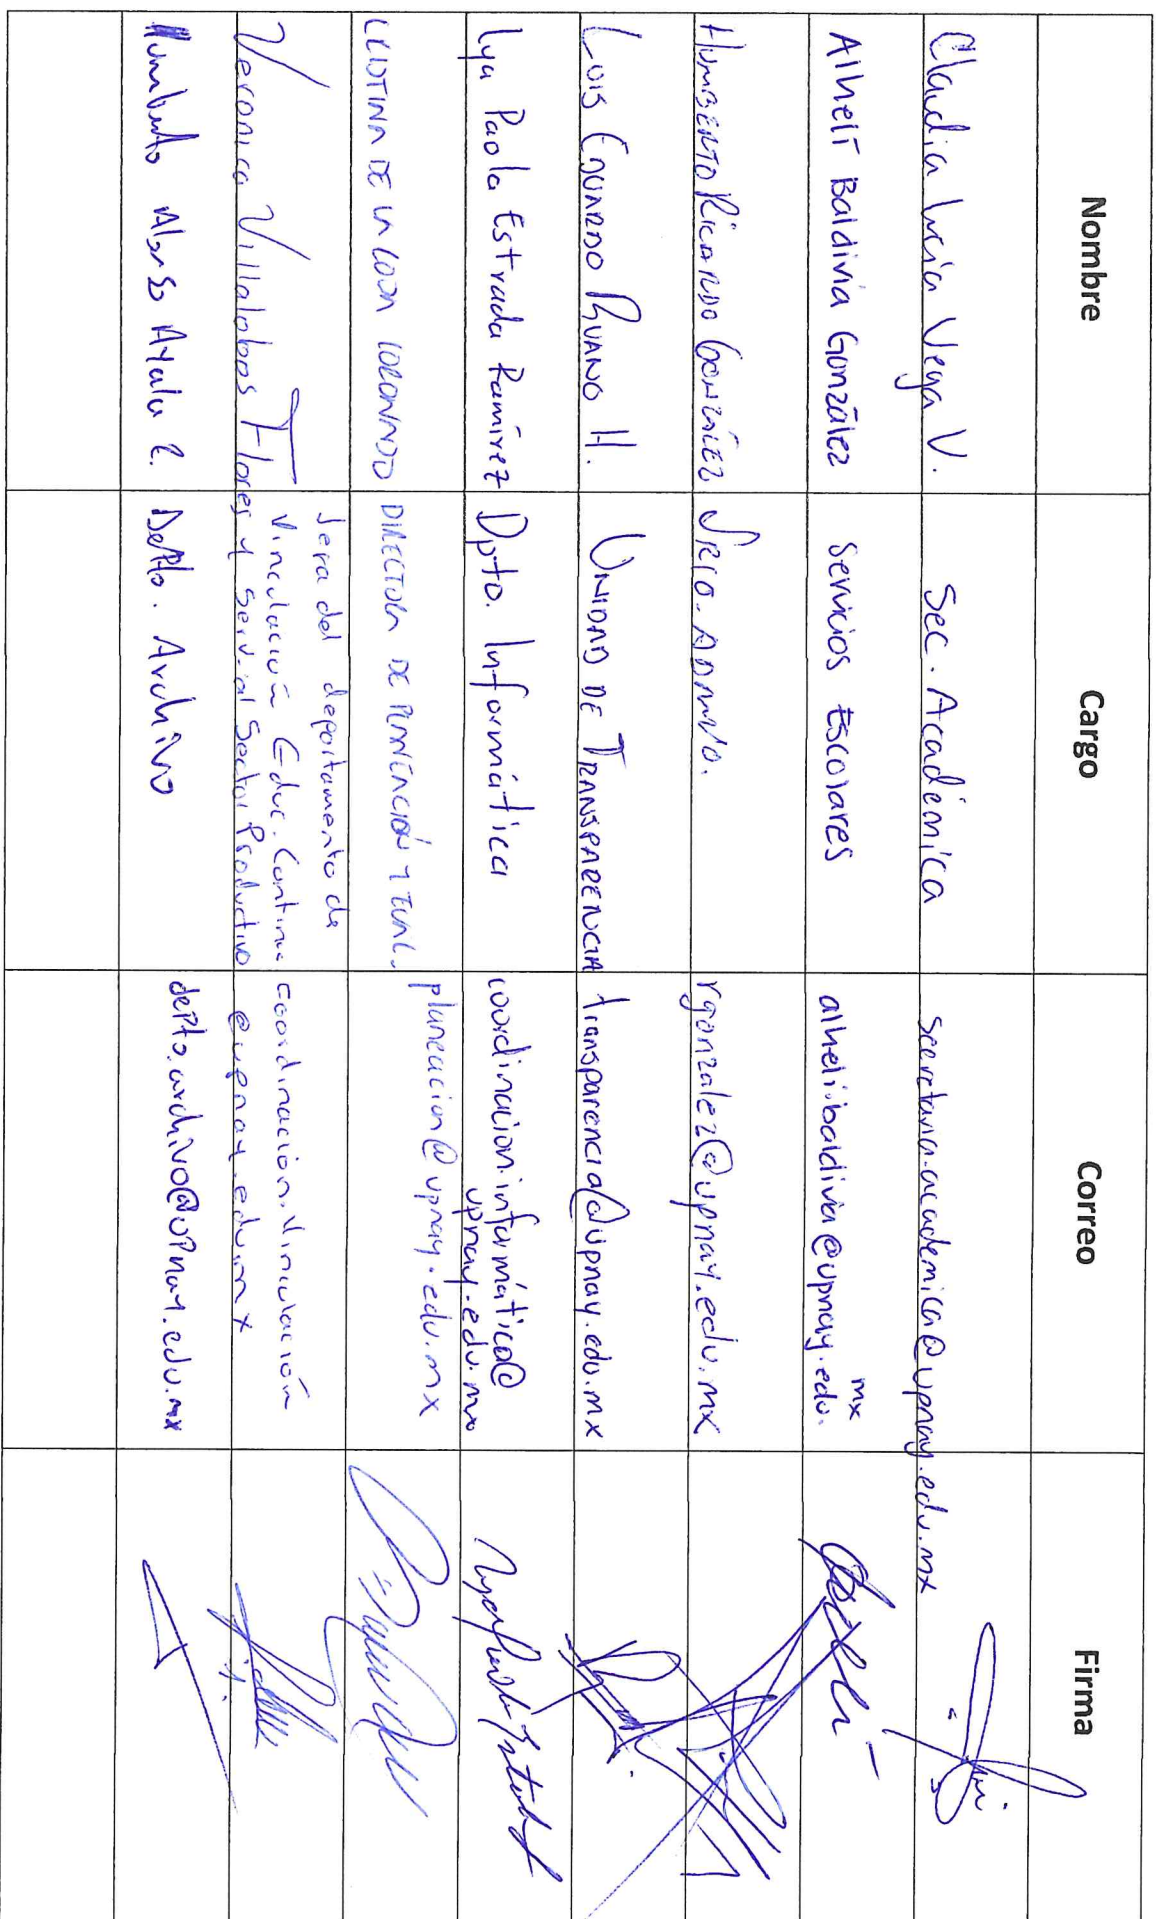 Nombre Cargo Correo Firma
Claudia Lucía Vega V. Sec. Académica secretaria.academica@upnay.edu.mx
Alhelí Baldivia González Servicios Escolares alheli.baldivia@upnay.edu.
mx
Humberto Ricardo González Srio. Admvo. rgonzalez@upnay.edu.mx
Luis Eduardo Ruano H. Unidad de Transparencia transparencia@upnay.edu.mx
Lya Paola Estrada Ramírez Dpto. Informática coordinacion.informática@
upnay.edu.mx
DE LA CORONADO DIRECTORA DE PLANEACIÓN Y EVAL. planeacion@upnay.edu.mx
Veronica Villalobos Flores Jefa del departamento de
Vinculación Educ. Continua
y Serv. al Sector Productivo
coordinacion.vinculación
@upnay.edu.mx
Humberto Alonso Ayala C. Depto. Archivo depto.archivo@upnay.edu.mx